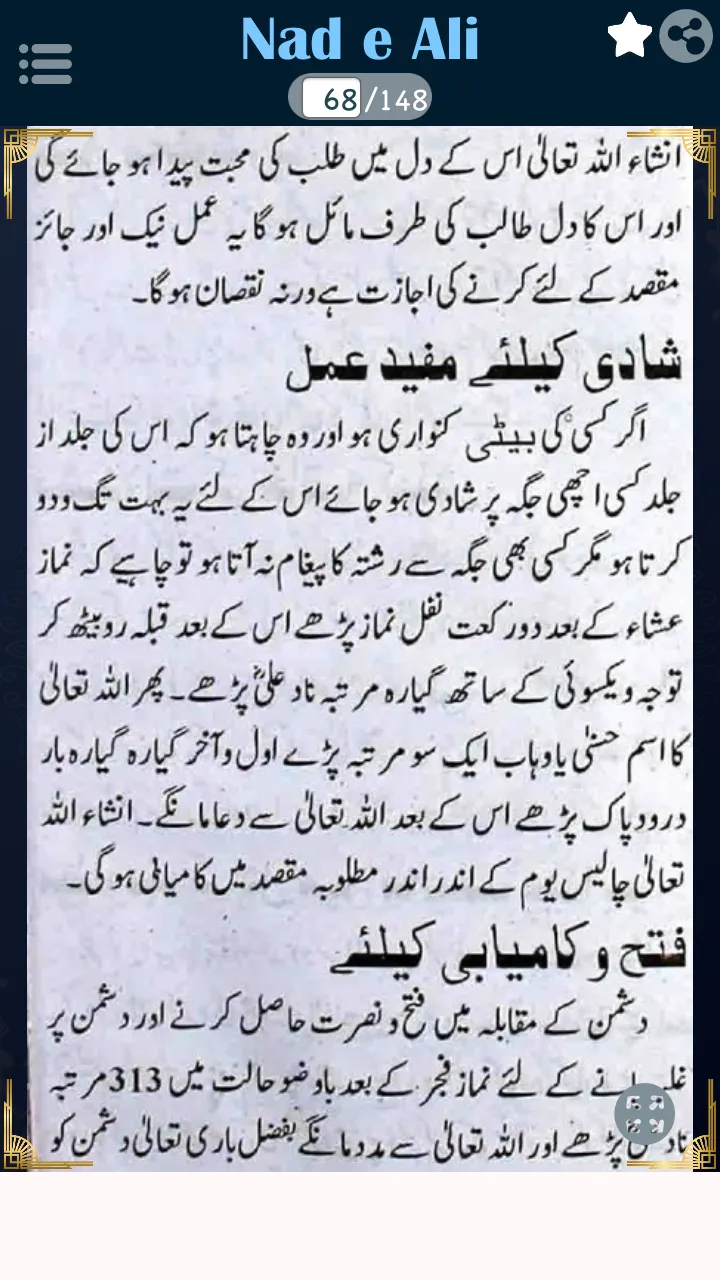 Nad e Ali
68/148
انشاء اللہ تعالیٰ اس کے دل میں طلب کی محبت پیدا ہو جائے گی
اور اس کا دل طالب کی طرف مائل ہو گا یہ عمل نیک اور جائز
مقصد کے لئے کرنے کی اجازت ہے ورنہ نقصان ہوگا۔
شادی کیلئے مفید عمل
اگر کسی کی بیٹی کنواری ہو اور وہ چاہتا ہو کہ اس کی جلد از
جلد کسی اچھی جگہ پر شادی ہو جائے اس کے لئے یہ بہت تگ ودو
کرتا ہو مگر کسی بھی جگہ سے رشتہ کا پیغام نہ آتا ہو تو چاہیے کہ نماز
عشاء کے بعد دو رکعت نفل نماز پڑھے اس کے بعد قبلہ رو بیٹھ کر
توجہ ویکسوئی کے ساتھ گیارہ مرتبہ ناد علیؓ پڑھے۔ پھر اللہ تعالیٰ
کا اسم حسنیٰ یا وہاب ایک سو مرتبہ پڑے اول و آخر گیارہ گیارہ بار
درود پاک پڑھے اس کے بعد اللہ تعالیٰ سے دعا مانگے۔ انشاء اللہ
تعالیٰ چالیس یوم کے اندر اندر مطلوبہ مقصد میں کامیابی ہوگی۔
فتح و کامیابی کیلئے
دشمن کے مقابلہ میں فتح و نصرت حاصل کرنے اور دشمن پر
کے لئے نماز فجر کے بعد باوضو حالت میں 313 مرتبہ
پڑھے اور اللہ تعالیٰ سے مدد مانگے بفضل باری تعالیٰ دشمن کو